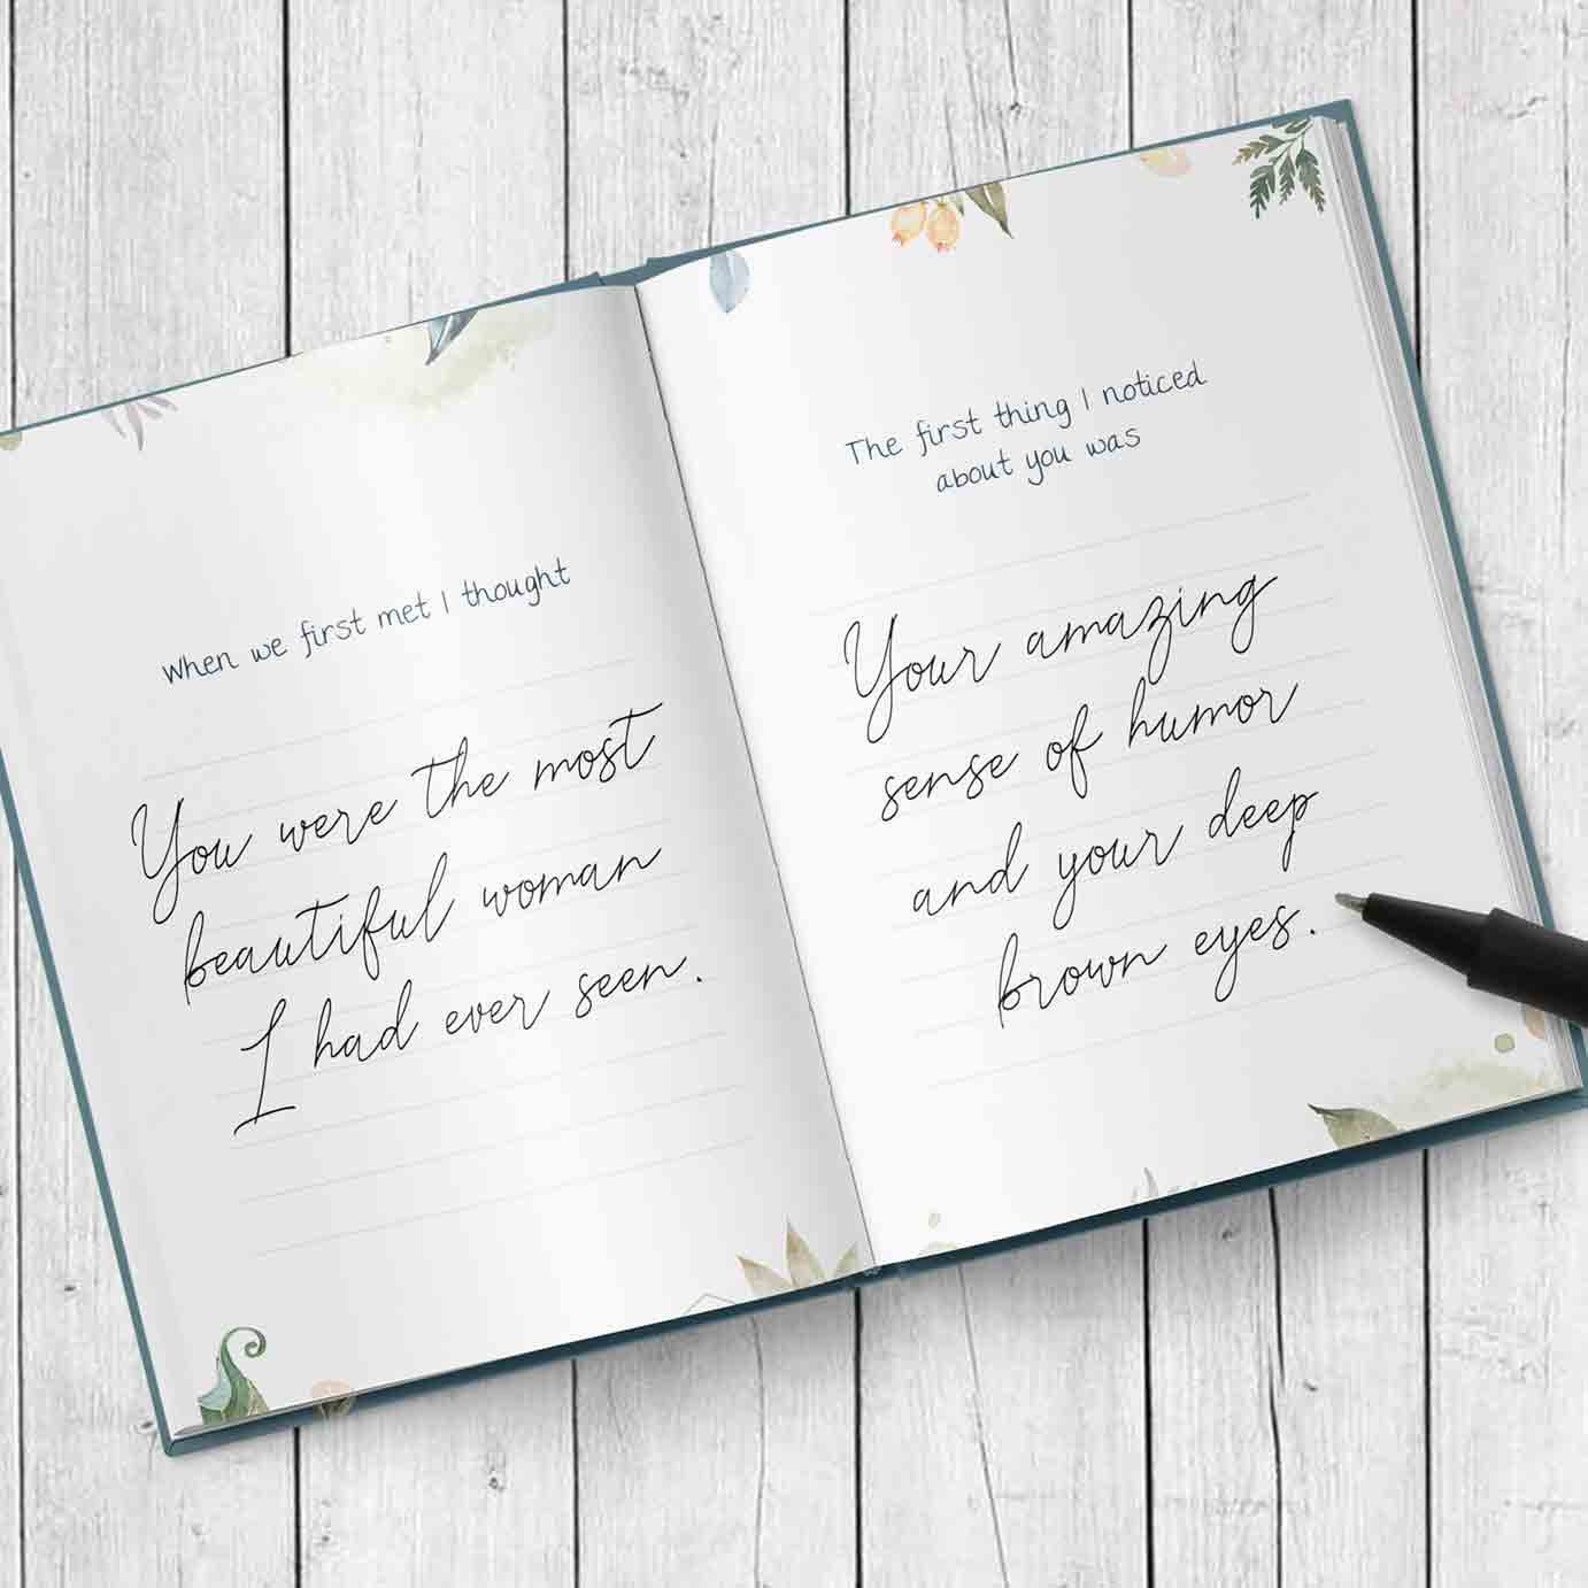 When we first met I thought
You were the most
beautiful woman
I had ever seen.
The first thing I noticed
about you was
Your amazing
sense of humor
and your deep
brown eyes.